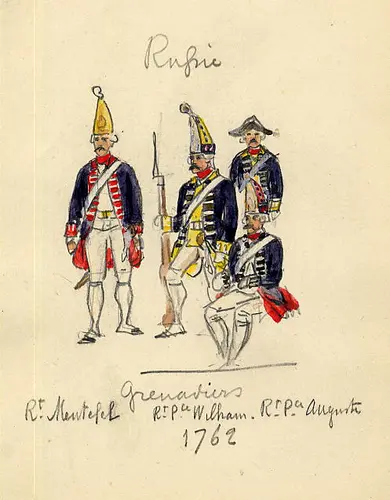 Russie
Grenadiers
Rt Mentefel Rt Pce Wilham. Rt Pce Auguste
1762